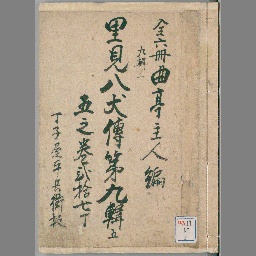 全六冊
九輯ノ一
曲亭主人編
里見八犬傳第九輯五
五之巻貳拾七丁
丁子屋平兵衛板